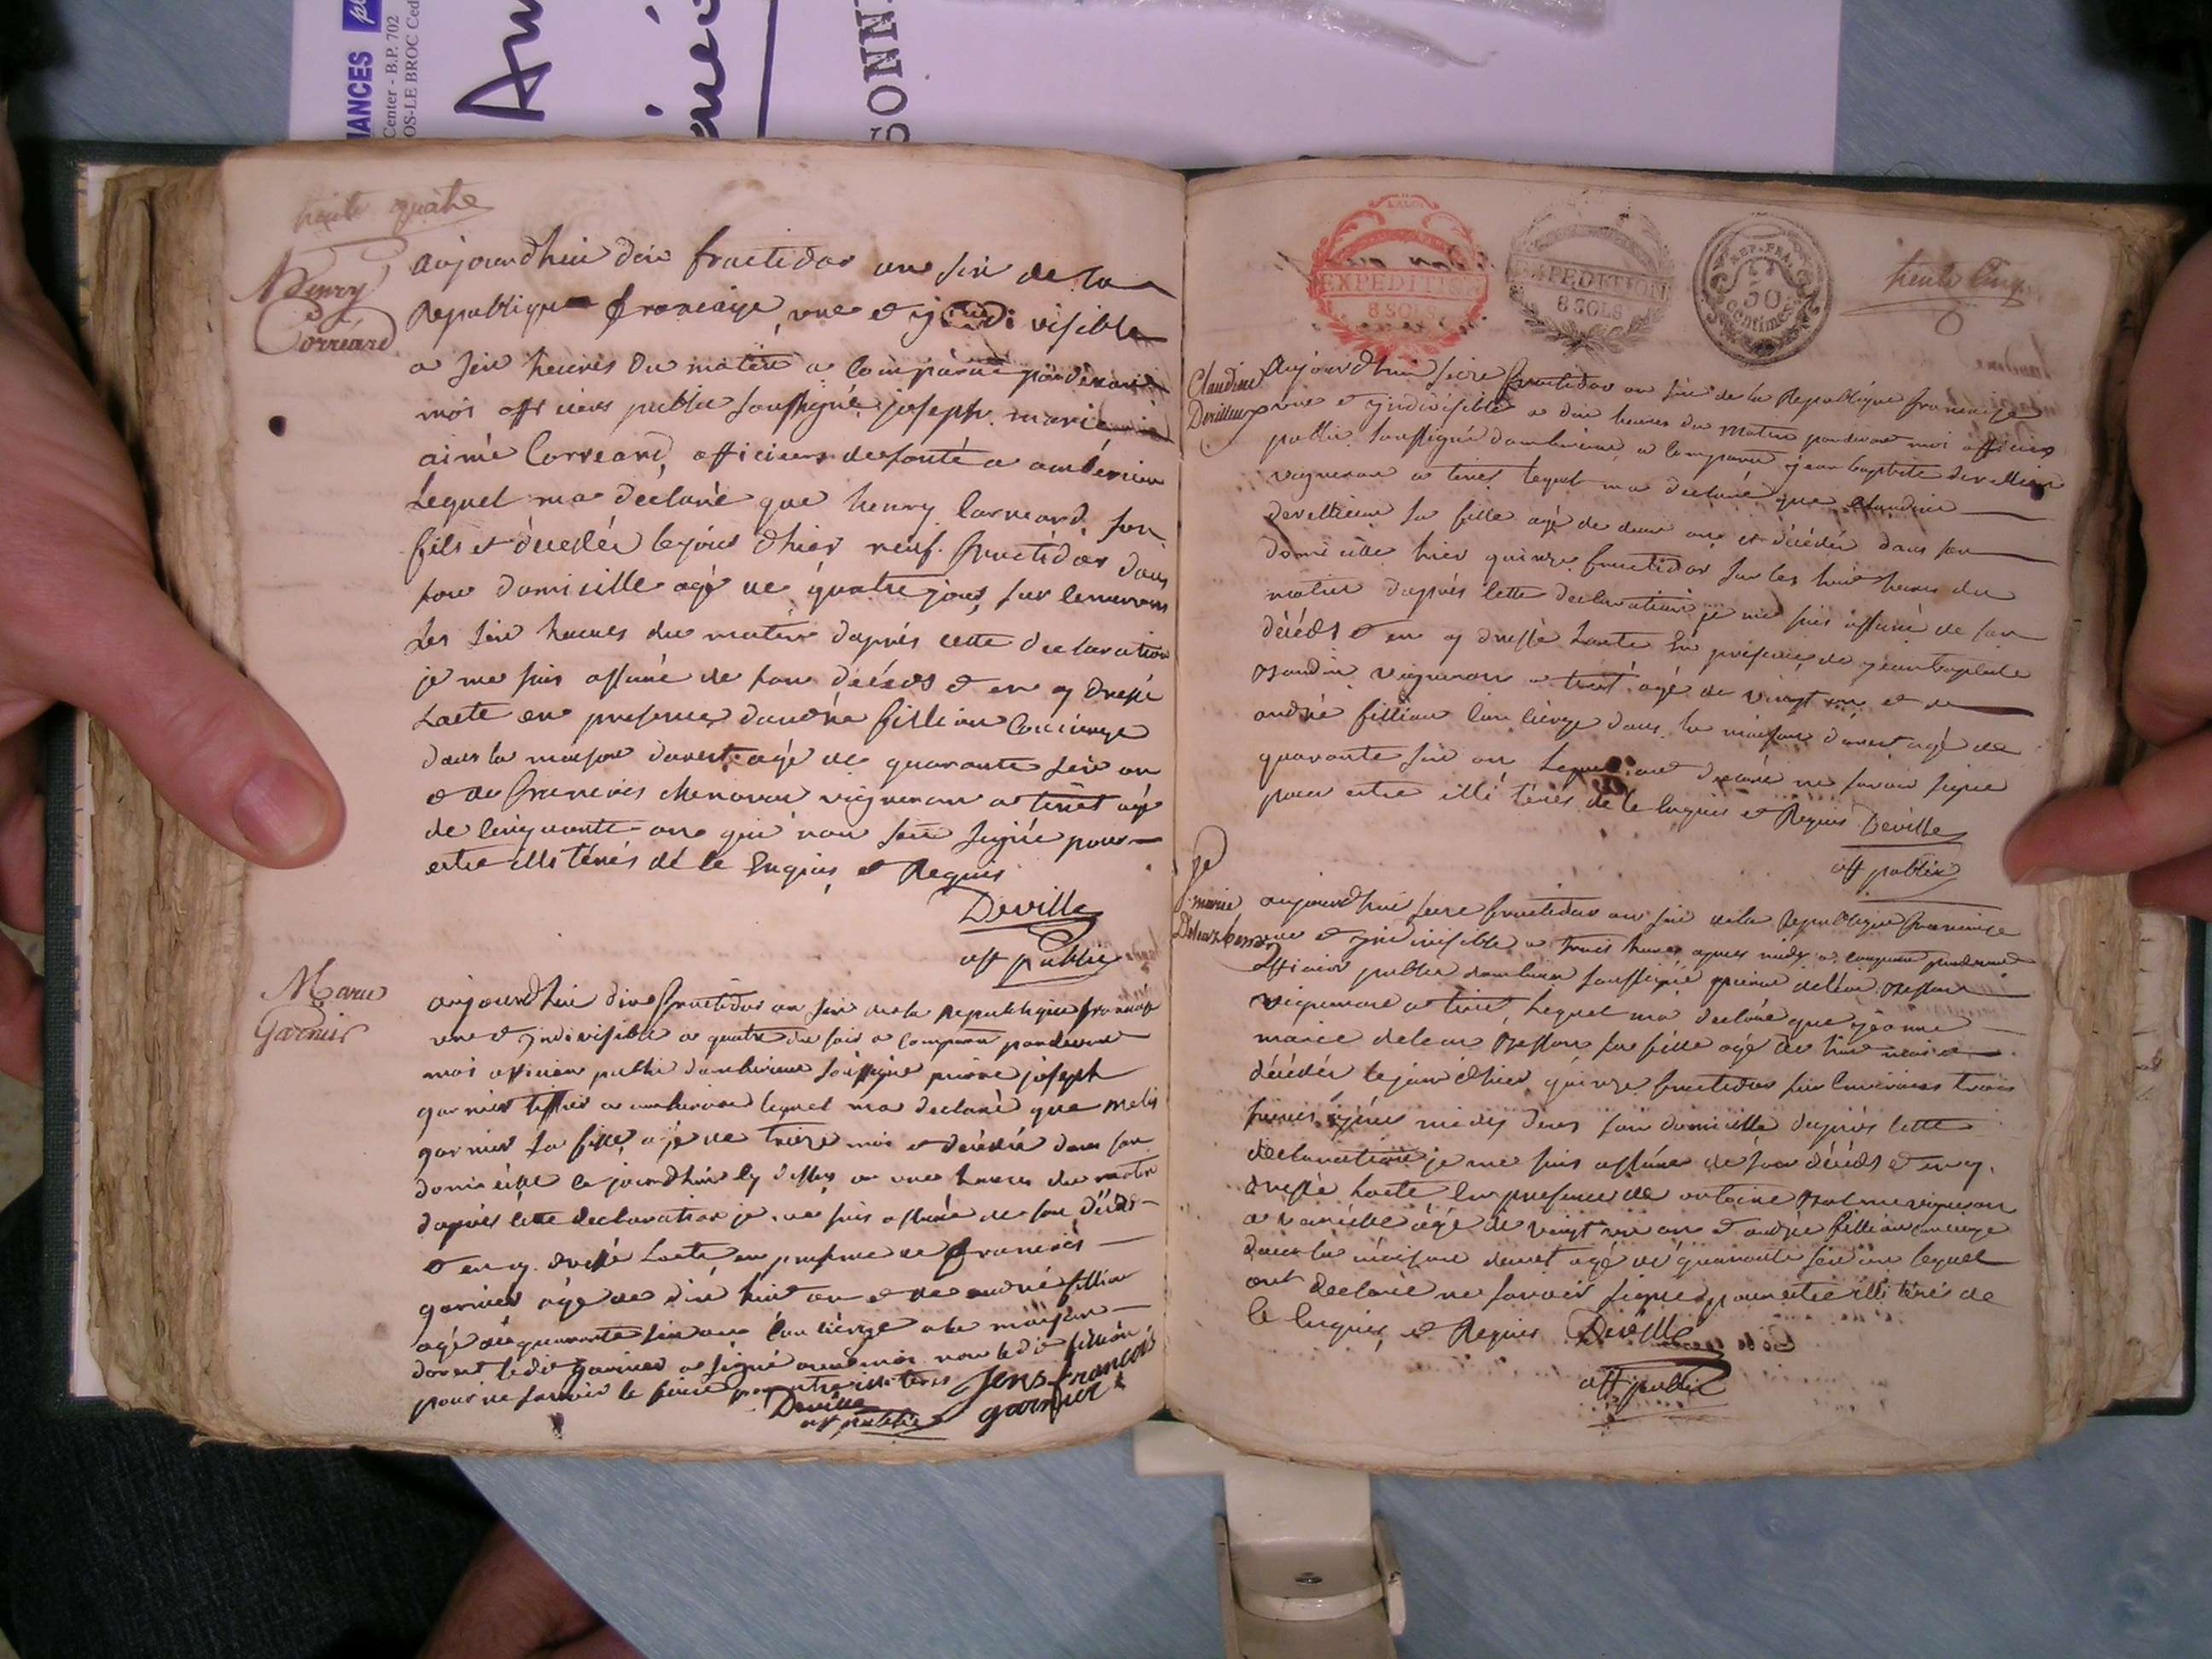 IANCES
Center - B.P. 702
OS-LE BROC Ced
SONN
trente quatre
henry
Corréard
aujourdhui dix fructidor an six de la
Republique francaise, une et indivisible
a six heures du matin a comparue pardevant
moi officiers public soussigné joseph marie
aimé Correard, officiers desanté a ambérieu
Lequel ma déclaré que henry Correard, son
fils et décédé le jour dhier neuf fructidor dans
son domicille agé de quatre jour, sur lenvirons
les six heures du matin daprés cette declaration
je me suis assuré de son décéds et en ay dressé
Lacte en presence dandré fillion Concierge
dans la maison darest agé de quarante six an
et de francois chenavas vigneron a tiret agé
de cinquante ans qui non sut signée pour
estre illitérés dé ce Enquis et Requis
Deville
off public
Marie
Garnier
aujourdhui dix fructidor an six de la republique francaise
une et indivisible a quatre du soir a comparu pardevant
moi officier public dambérieux soussigné pierre joseph
garnier tissier a amberieux lequel ma declaré que
garnier sa fille agé de treize moi et décédée dans son
domicille le jourdhui a une heures du matin
daprés cette declaration je me suis assuré de son décéds
et en ay dressé Lacte en presence de francois
garnier agé de dix huit an et de andré fillion
agé de quarante six ans conciérge a la maison
darest ledit garnier a signé avec moi non ledit fillion
pour ne savoir le faire pour estre illitérés
Deville
off public
Jens françois
garnier
EXPEDITION
8 SOLS
EXPEDITION
8 SOLS
REP. FRA.
50
Centimes
trente Cinq
Claudine
Devillieux
Aujourdhui seize fructidor an six de la Republique francaise
une et indivisible a dix heures du matin pardevant moi officier
public soussigné dambérieux a comparu jean baptiste devillieux
vigneron a tiret lequel ma declaré que claudine
devillieux sa fille agé de deux ans et décédée dans son
domicille hier quinze fructidor sur les huit heures du
matin daprés cette declaration je me suis assuré de son
décéds et en ay dressé Lacte En présence de jean baptiste
vigneron a tiret agé de vingt un et de
andré fillion conciérge dans la maison darest agé de
quarante six an Lequel ont declaré ne savoir signé
pour estre illitérés de ce Enquis et Requis Deville
off public
marie
aujourdhui seize fructidor an six de la Republique francaise
une et indivisible a trois heures apres midy a comparu pardevant
officier public dambérieux soussigné pierre
vigneron a tiret, Lequel ma declaré que jeanne
marie sa fille agé de huit mois
décédée le jour dhier quinze fructidor sur lenvirons trois
heures apres midy dans son domicille daprés cette
declaration je me suis assurée de son décéds et en ay
dressé Lacte En presence de antoine vigneron
a agé de vingt an et andre fillion concierge
dans la maison darest agé de quarante six an lequel
ont declaré ne savoir signé pour estre illitérés de
ce Enquis et Requis Deville
off public